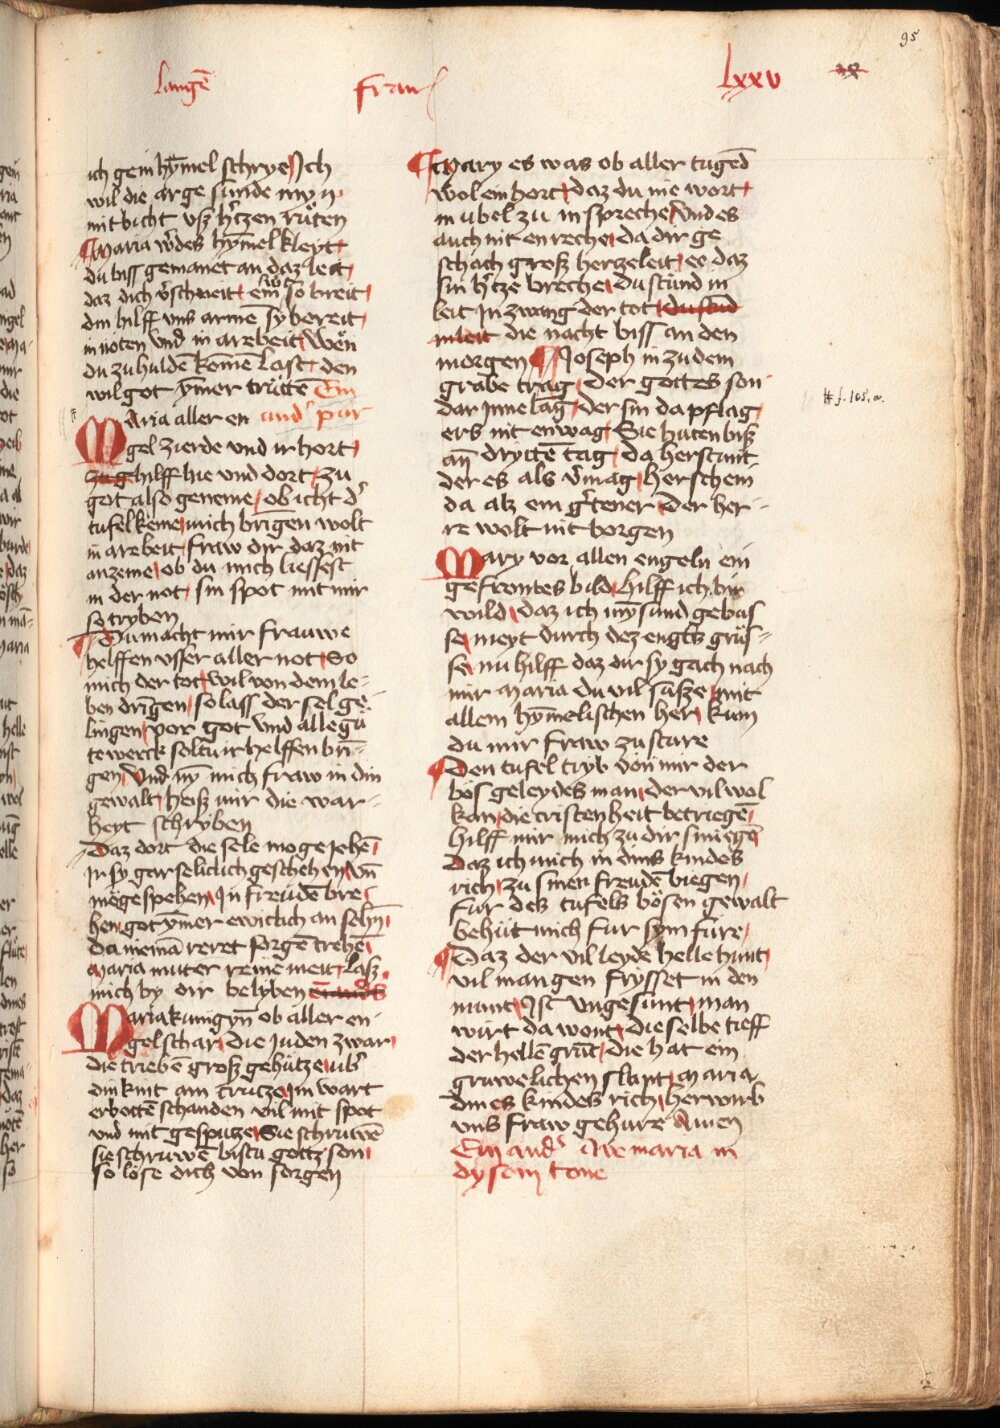 95
Langē Fraw Lxxv
ich gein hȳmel schrye Ich
wil die arge sunde myn
mit bicht vsz h'czen rúten
Maria v̓ des hymel kleyt
du biss gemanet an daz leit
daz dich v̓schneit ein so breit
din hilff vns armē sy bereit
in nöten vnd in arebeit Wen
du zu huldē komē last den
wil got ȳmer truttē Ein
Maria aller en and' par
gel zierde vnd ir hort
zu g hilff hie vnd dort zu
got also geneme ob icht d'
tufel keme mich bringen wolt
in arebeit fraw dir daz nit
anzeme ob du mich liessest
in der not sin spot mit mir
so tryben
Du macht mir frauwe
helffen vsser aller not So
mich der tot wil von dem le-
ben dringen so lass der sel ge-
lingen por got vnd alle gu
te werck soltu ir helffen brī-
gen Vnd nȳ mich fraw in din
gewalt heisz mir die war-
heyt schryben
Daz dort die sele moge jehē
Ir sy gar selicklich geschehen vn̄
möge spehen In freudē bre
hen got ȳmer ewiclich an sehn̄
Da niemā reret sorgē trehē
Maria muter reine meit lasz
mich by dir belyben
Maria kunigyn̄ ob aller en-
gel schar die Juden zwar
die triebē grosz gehutze vb'
din kint am crucze in wart
erbottē schanden vil mit spot
vnd mit gespucze Sie schruwē
sie schruwē bistu gottz son
so löse dich von sorgen
Mary es was ob aller tugēd
wol ein hort daz du nie wort
in ubel zu in spreche Vnd es
auch nit en reche da dir ge
schach grosz herzeleit ee daz
sin h'tze breche du stund in
leit In zwang der tot du stūd
in leit die nacht biss an den
morgen Joseph in zu dem
grabe trag der gottes son
dar Inne lag der sin da pflag
ers nit enwag Sie huten bisz
an̄ dryttē tag da herstunt
der es als v̓mag Her schein
da alz ein g'tener der her-
re wolt nit borgen
Mary vor allen engeln ein
gefrontes bild hilff ich bin
wild daz ich myn sund gebus
se meyt durch dez engels grus-
se nu hilff daz dir sy gach nach
mir maria du vil susze mit
allem hȳmelischen her kum
du mir fraw zu stare
Den tufel tryb von mir der
bös geleydes man der vil wol
kan die cristenheit betriegē
hilff mir mich zu dir smiegē
Daz ich mich in dins kindes
rich zu sinen freudē biegen
fur des tufels bösen gewalt
behüt mich fur sym füre
Daz der vil leyde helle hunt
vil mangen frysset in den
munt Ist vngesunt man
wirt da wont die selbe tieff
der hellē grut die hat ein
gruwelichen slunt maria
dines kindes rich herwirb
vns fraw gehure Amen
Ein and' Ave maria in
dysem tone
# f. 105. a.